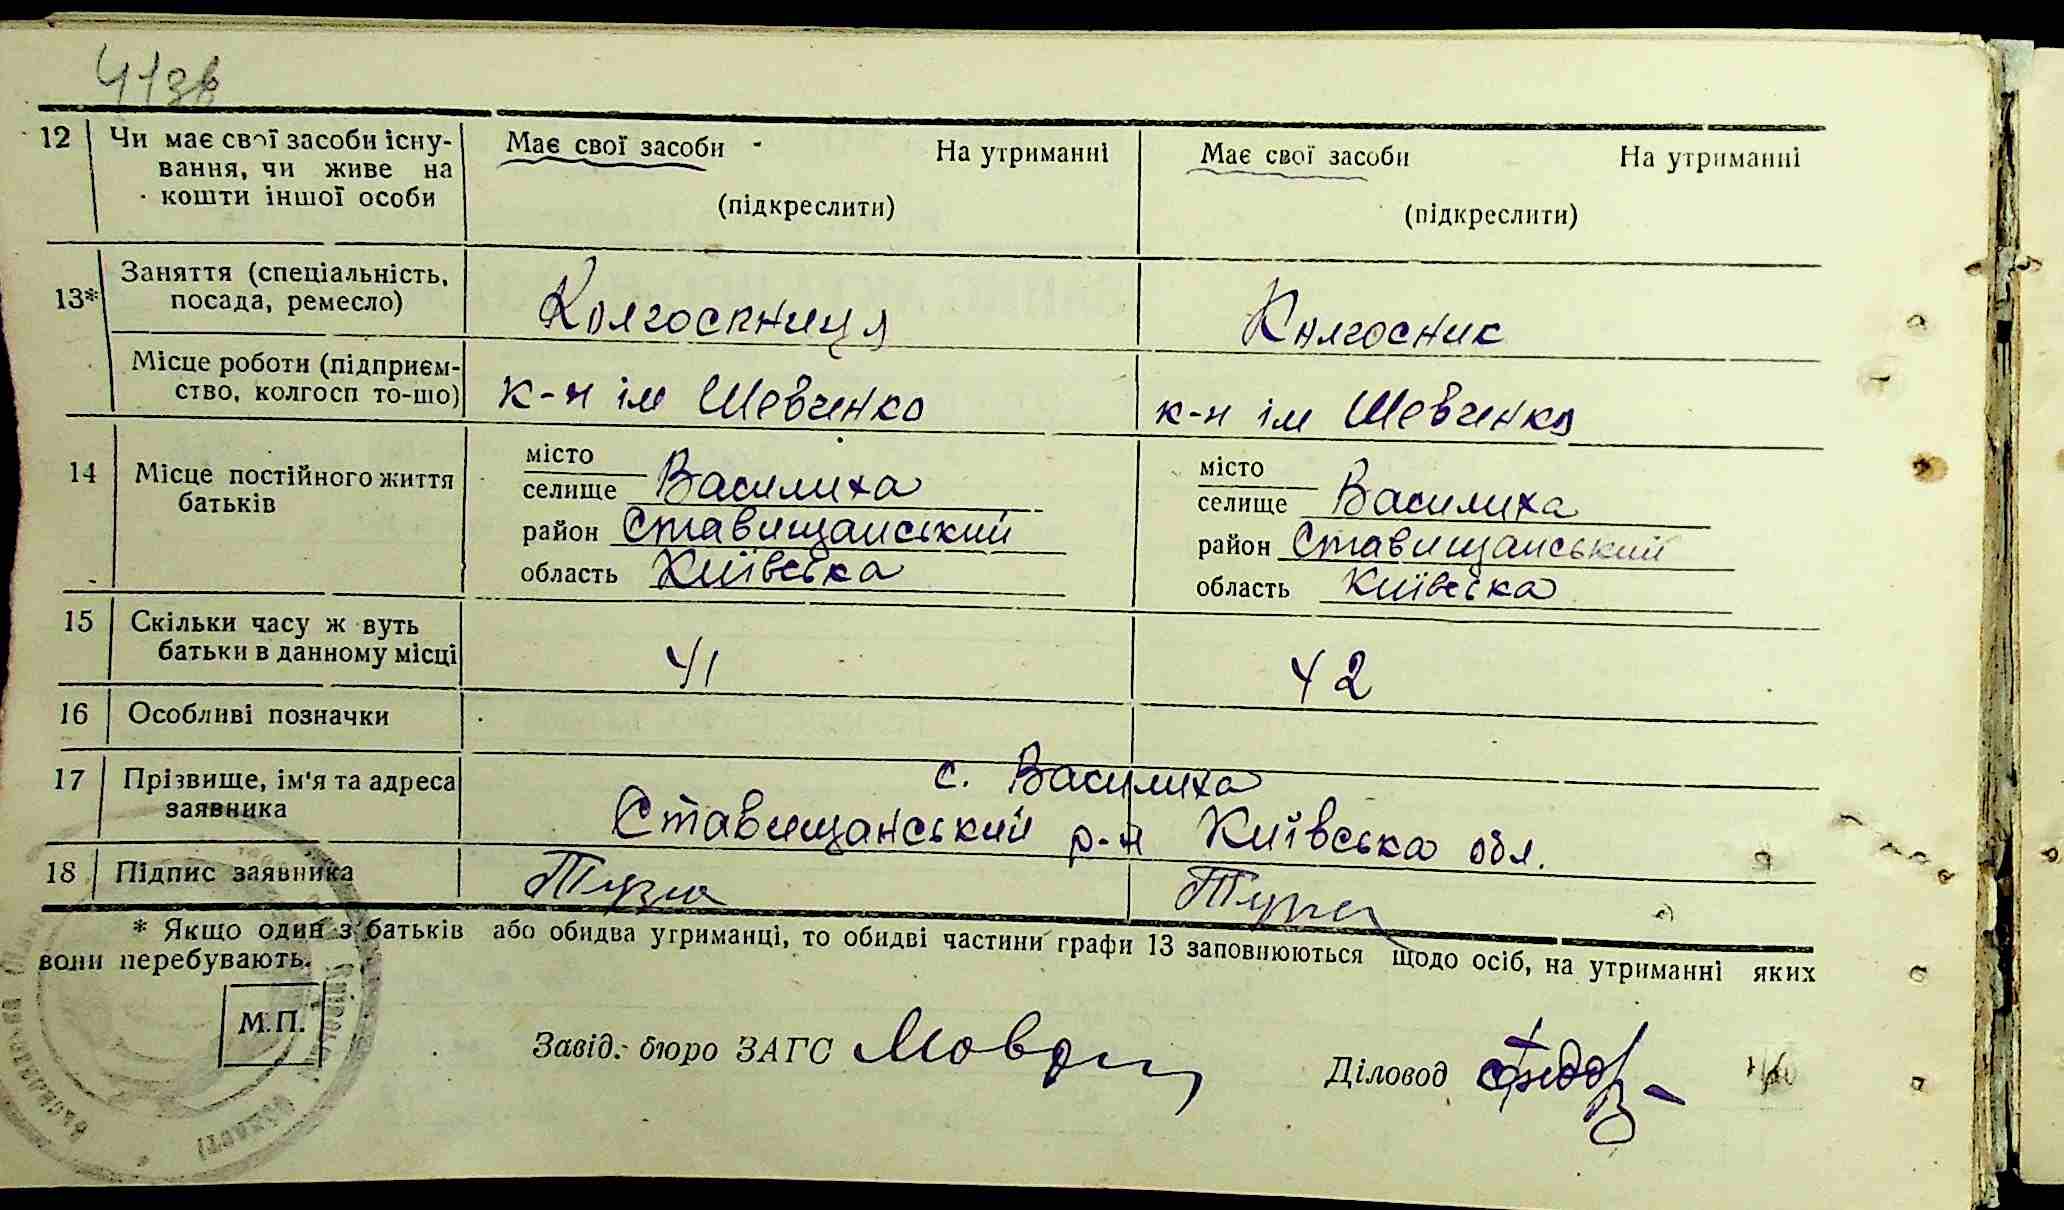 41зв
12 Чи має свої засоби існу- Має свої засоби На утриманні Має свої засоби На утриманні
вання, чи живе на
кошти іншої особи (підкреслити) (підкреслити)
13* Заняття (спеціальність, Колгоспниця Колгосник
посада, ремесло)
Місце роботи (підприєм- к-п ім Шевченко к-п ім Шевченко
ство, колгосп то-що)
місто місто
14 Місце постійного життя селище Василиха селище Василиха
батьків район Ставищанський район Ставищанський
область Київська область Київська
15 Скільки часу ж вуть 41 42
батьки в данному місці
16 Особливі позначки
17 Прізвище, ім'я та адреса с. Василиха
заявника Ставищанський р-н Київська обл.
18 Підпис заявника
* Якщо один з батьків або обидва утриманці, то обидві частини графи 13 заповнюються щодо осіб, на утриманні яких
вони перебувають.
М.П.
Завід. бюро ЗАГС Діловод